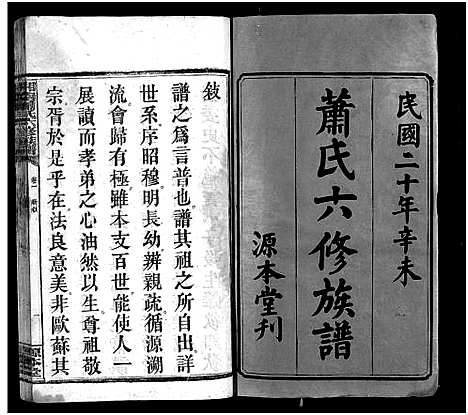 民國二十年辛未
蕭氏六修族譜
源本堂刊
敍
譜之爲言普也譜其祖之所自出詳
世系序昭穆明長幼辨親疏循源溯
流會歸有極雖本支百世能使人一
展讀而孝弟之心油然以生尊祖敬
宗胥於是乎在法良意美非歐蘇其